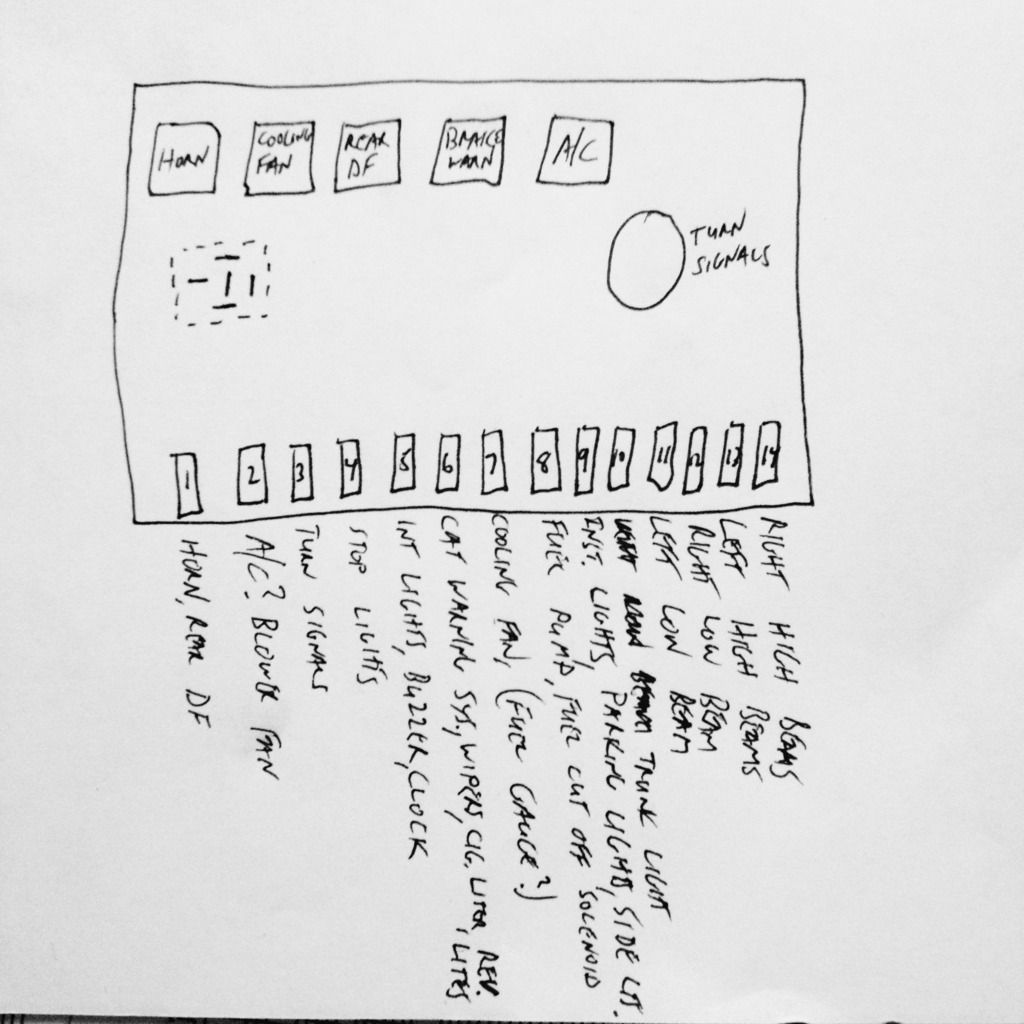 HORN
COOLING
FAN
REAR
DF
BRAKE
WARN
A/C
TURN
SIGNALS
1
2
3
4
5
6
7
8
9
10
11
12
13
14
HORN, REAR DF
A/C? BLOWER FAN
TURN SIGNALS
STOP LIGHTS
INT LIGHTS, BUZZER, CLOCK
CAT WARNING SYS., WIPERS, CIG. LITER, REV. LITES
COOLING FAN, (FUEL GAUGE?)
FUEL PUMP, FUEL CUT OFF SOLENOID
INST. LIGHTS, PARKING LIGHTS, SIDE LTS.
TRUNK LIGHT
LEFT LOW BEAM
RIGHT LOW BEAM
LEFT HIGH BEAMS
RIGHT HIGH BEAMS